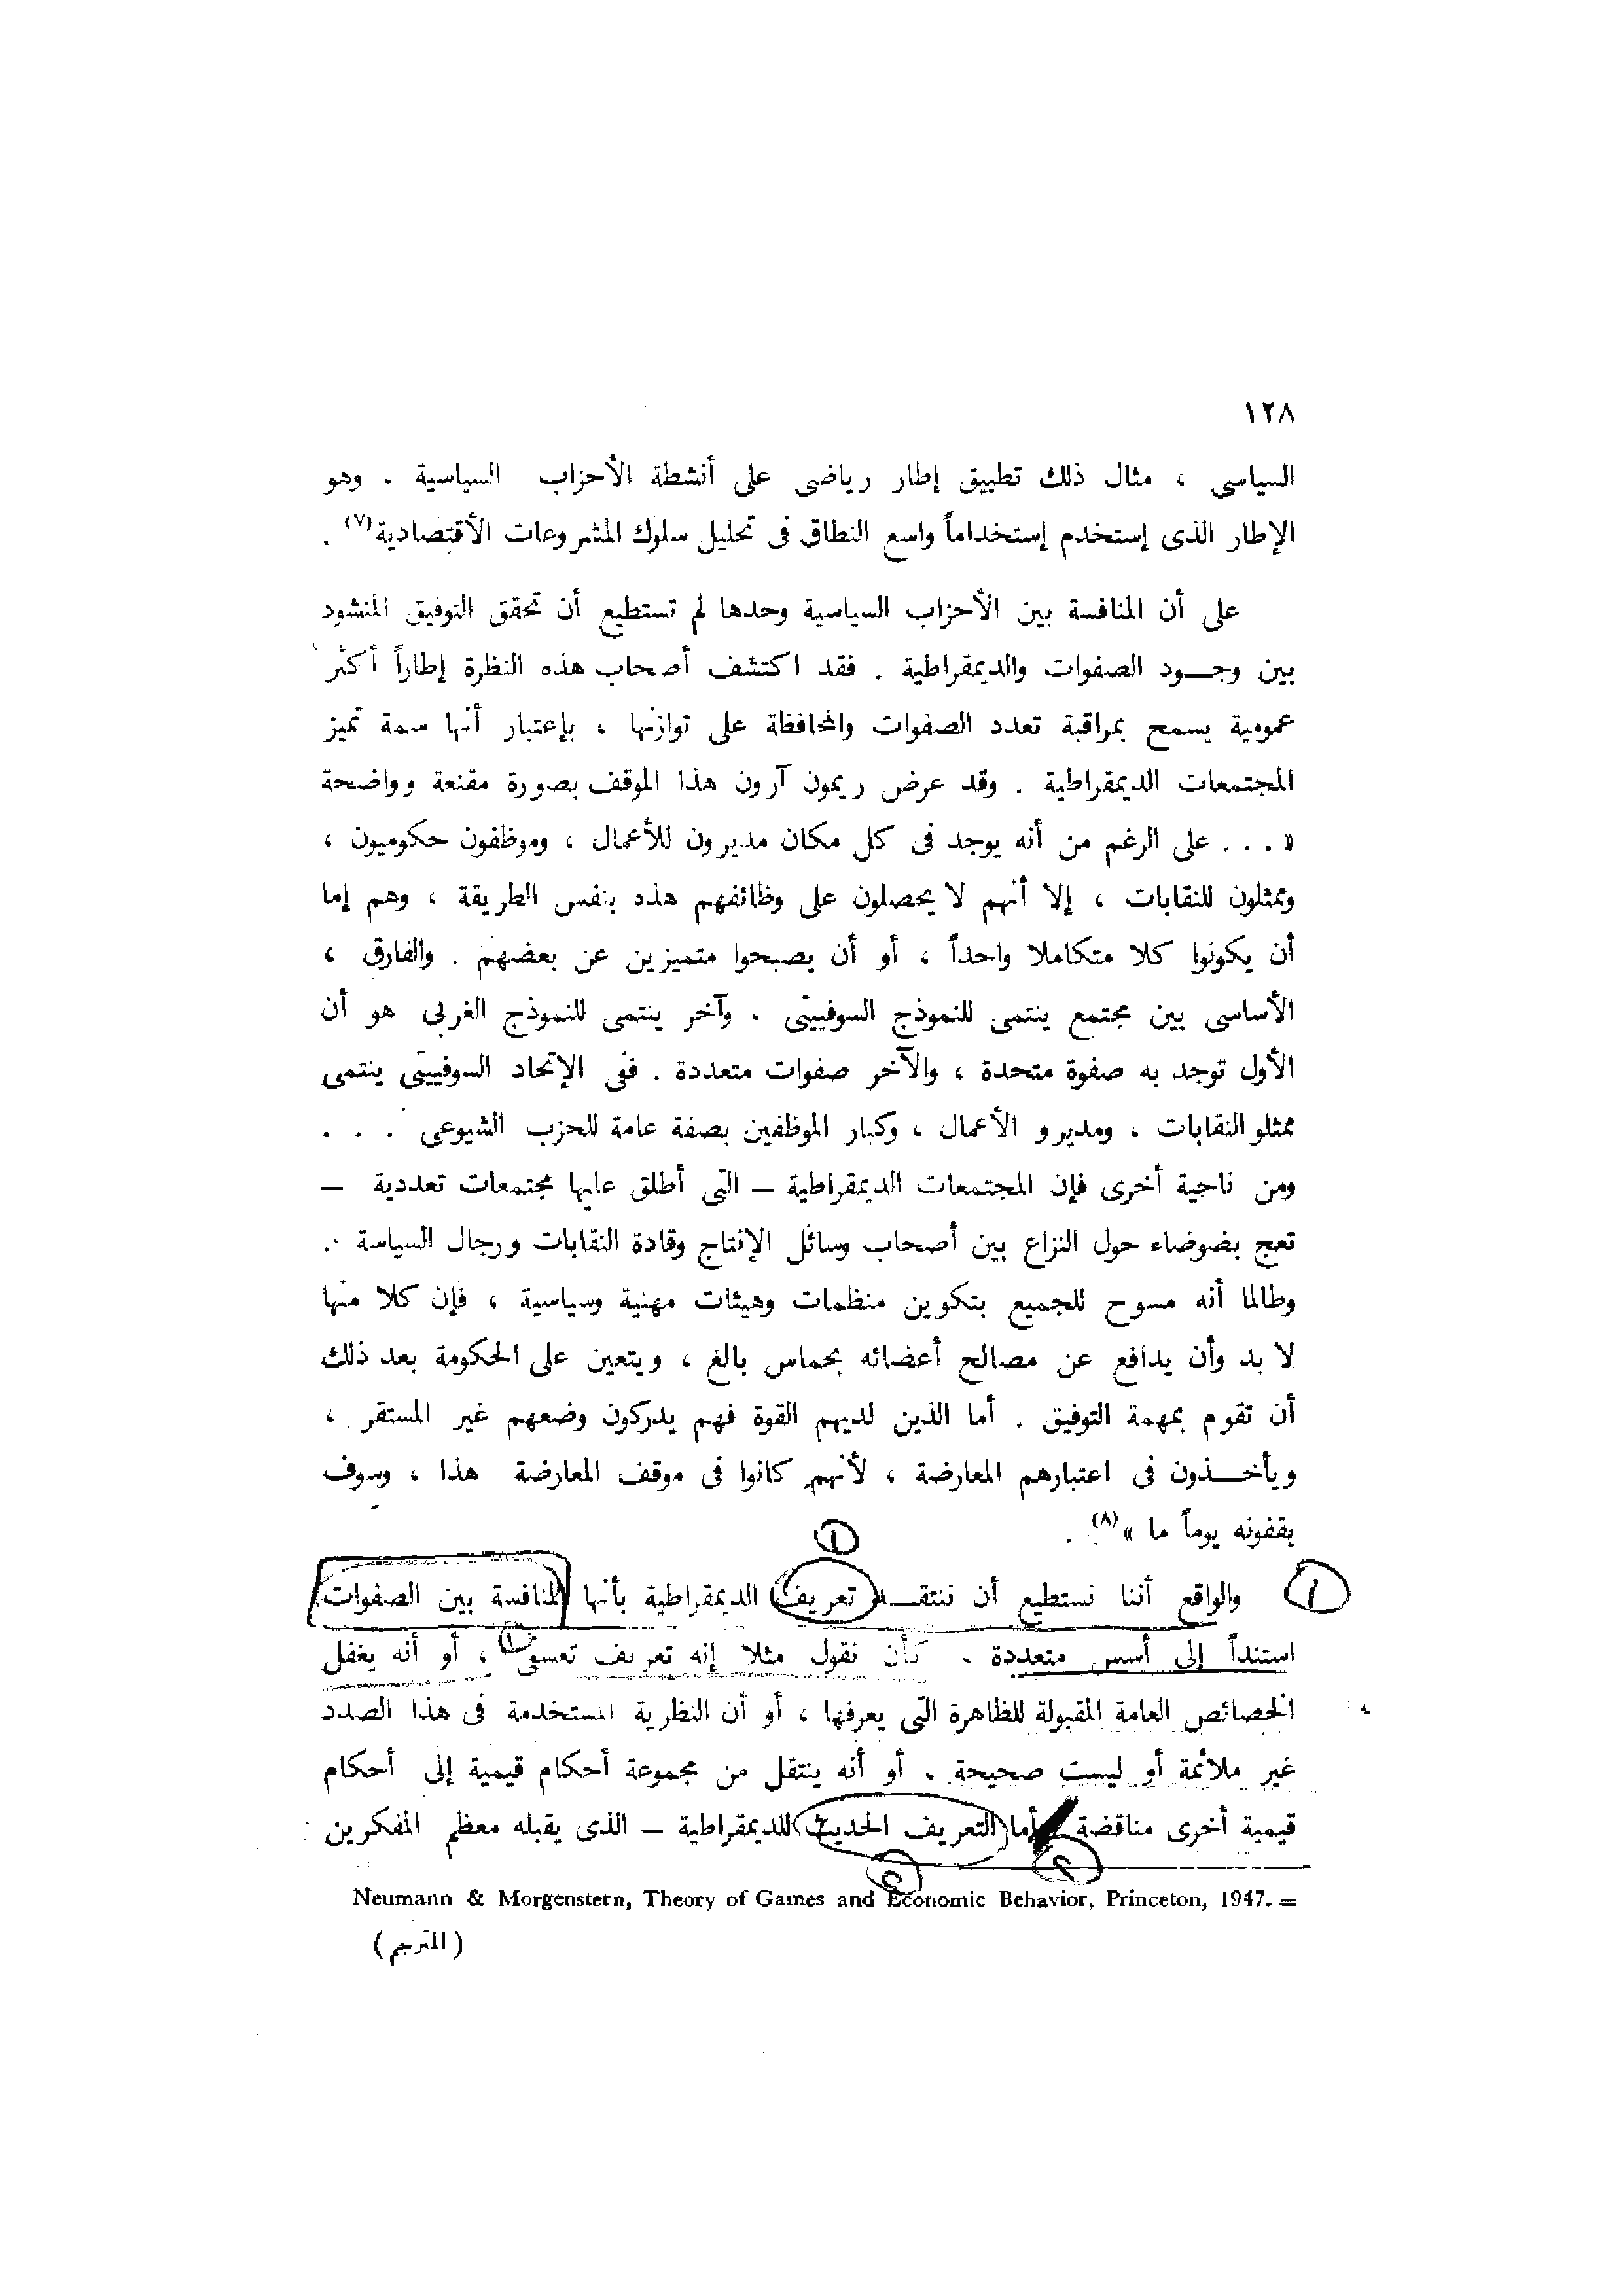 ١٢٨
السياسى ، مثال ذلك تطبيق إطار رياضى على أنشطة الأحزاب السياسية . وهو
الإطار الذى إستخدم إستخداماً واسع النطاق فى تحليل سلوك المشروعات الأقتصادية(٧) .
على أن المنافسة بين الأحزاب السياسية وحدها لم تستطيع أن تحقق التوفيق المنشود
بين وجـــود الصفوات والديمقراطية . فقد اكتشف أصحاب هذه النظرة إطاراً أكثر
عمومية يسمح بمراقبة تعدد الصفوات والمحافظة على توازنها ، بإعتبار أنها سمة تميز
المجتمعات الديمقراطية . وقد عرض ريمون آرون هذا الموقف بصورة مقنعة وواضحة
« . . . على الرغم من أنه يوجد فى كل مكان مديرون للأعمال ، وموظفون حكوميون ،
وممثلون للنقابات ، إلا أنهم لا يحصلون على وظائفهم هذه بنفس الطريقة ، وهم إما
أن يكونوا كلا متكاملا واحداً ، أو أن يصبحوا متميزين عن بعضهم . والفارق ،
الأساسى بين مجتمع ينتمى للنموذج السوفييتى ، وآخر ينتمى للنموذج الغربى هو أن
الأول توجد به صفوة متحدة ، والآخر صفوات متعددة . ففى الإتحاد السوفييتى ينتمى
ممثلو النقابات ، ومديرو الأعمال ، وكبار الموظفين بصفة عامة للحزب الشيوعى . . .
ومن ناحية أخرى فإن المجتمعات الديمقراطية – التى أطلق عليها مجتمعات تعددية –
تعج بضوضاء حول النزاع بين أصحاب وسائل الإنتاج وقادة النقابات ورجال السياسة .
وطالما أنه مسوح للجميع بتكوين منظمات وهيئات مهنية وسياسية ، فإن كلا منها
لا بد وأن يدافع عن مصالح أعضائه بحماس بالغ ، ويتعين على الحكومة بعد ذلك
أن تقوم بمهمة التوفيق . أما الذين لديهم القوة فهم يدركون وضعهم غير المستقر ،
ويأخـــذون فى اعتبارهم المعارضة ، لأنهم كانوا فى موقف المعارضة هذا ، وسوف
يقفونه يوماً ما »(٨) .
١
١ والواقع أننا نستطيع أن ننتقـــد تعريف الديمقراطية بأنها المنافسة بين الصفوات
استنداً إلى أسس متعددة . كأن نقول مثلا إنه تعريف تعسفى ١ ، أو أنه يغفل
الخصائص العامة المقبولة للظاهرة التى يعرفها ، أو أن النظرية المستخدمة فى هذا الصدد
غير ملائمة أو ليست صحيحة . أو أنه ينتقل من مجموعة أحكام قيمية إلى أحكام
قيمية أخرى مناقضة . أما (التعريف الحديث) للديمقراطية – الذى يقبله معظم المفكرين
Neumann & Morgenstern, Theory of Games and Economic Behavior, Princeton, 1947. =
( المترجم )